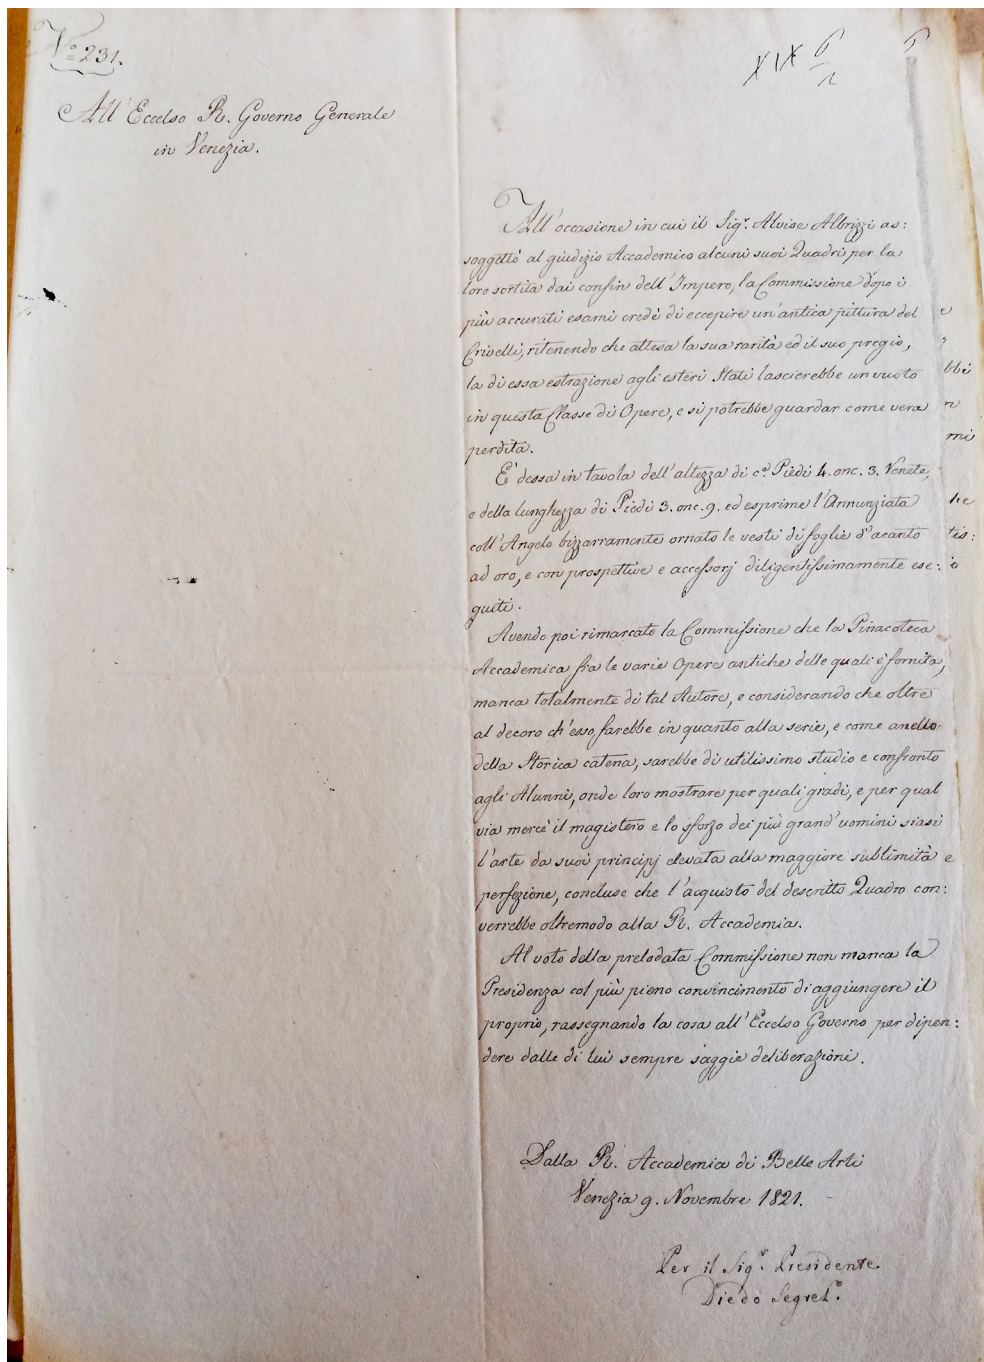 N.º 231.
XIX 6/2
6
All' Eccelso R. Governo Generale
in Venezia.
All'occasione in cui il Sig.r Alvise Albrizzi as:
soggettò al giudizio Accademico alcuni suoi Quadri per la
loro sortita dai confin dell'Impero, la Commissione dopo i
più accurati esami credè di eccepire un'antica pittura del
Crivelli, ritenendo che attesa la sua rarità ed il suo pregio,
la di essa estrazione agli esteri Stati lascierebbe un vuoto
in questa Classe di Opere, e si potrebbe guardar come vera
perdita.
E' dessa in tavola dell'altezza di c.a Piedi 4. onc. 3. Venete,
e della lunghezza di Piedi 3. onc. 9. ed esprime l'Annunziata
coll'Angelo bizzarramente ornato le vesti di foglie d'acanto
ad oro, e con prospettive e accessorj diligentissimamente ese:
guiti.
Avendo poi rimarcato la Commissione che la Pinacoteca
Accademica fra le varie Opere antiche delle quali è fornita,
manca totalmente di tal Autore, e considerando che oltre
al decoro ch'esso farebbe in quanto alla serie, e come anello
della Storica catena, sarebbe di utilissimo studio e confronto
agli Alunni, onde loro mostrare per quali gradi, e per qual
via mercè il magistero e lo sforzo dei più grand'uomini siasi
l'arte da suoi principj elevata alla maggiore sublimità e
perfezione, concluse che l'acquisto del descritto Quadro con:
verrebbe oltremodo alla R. Accademia.
Al voto della prelodata Commissione non manca la
Presidenza col più pieno convincimento di aggiungere il
proprio, rassegnando la cosa all'Eccelso Governo per dipen:
dere dalle di lui sempre saggie deliberazioni.
Dalla R. Accademia di Belle Arti
Venezia 9. Novembre 1821.
Per il Sig.r Presidente
Diedo Segret.o
e
bbi
n
mi
he
tis:
i